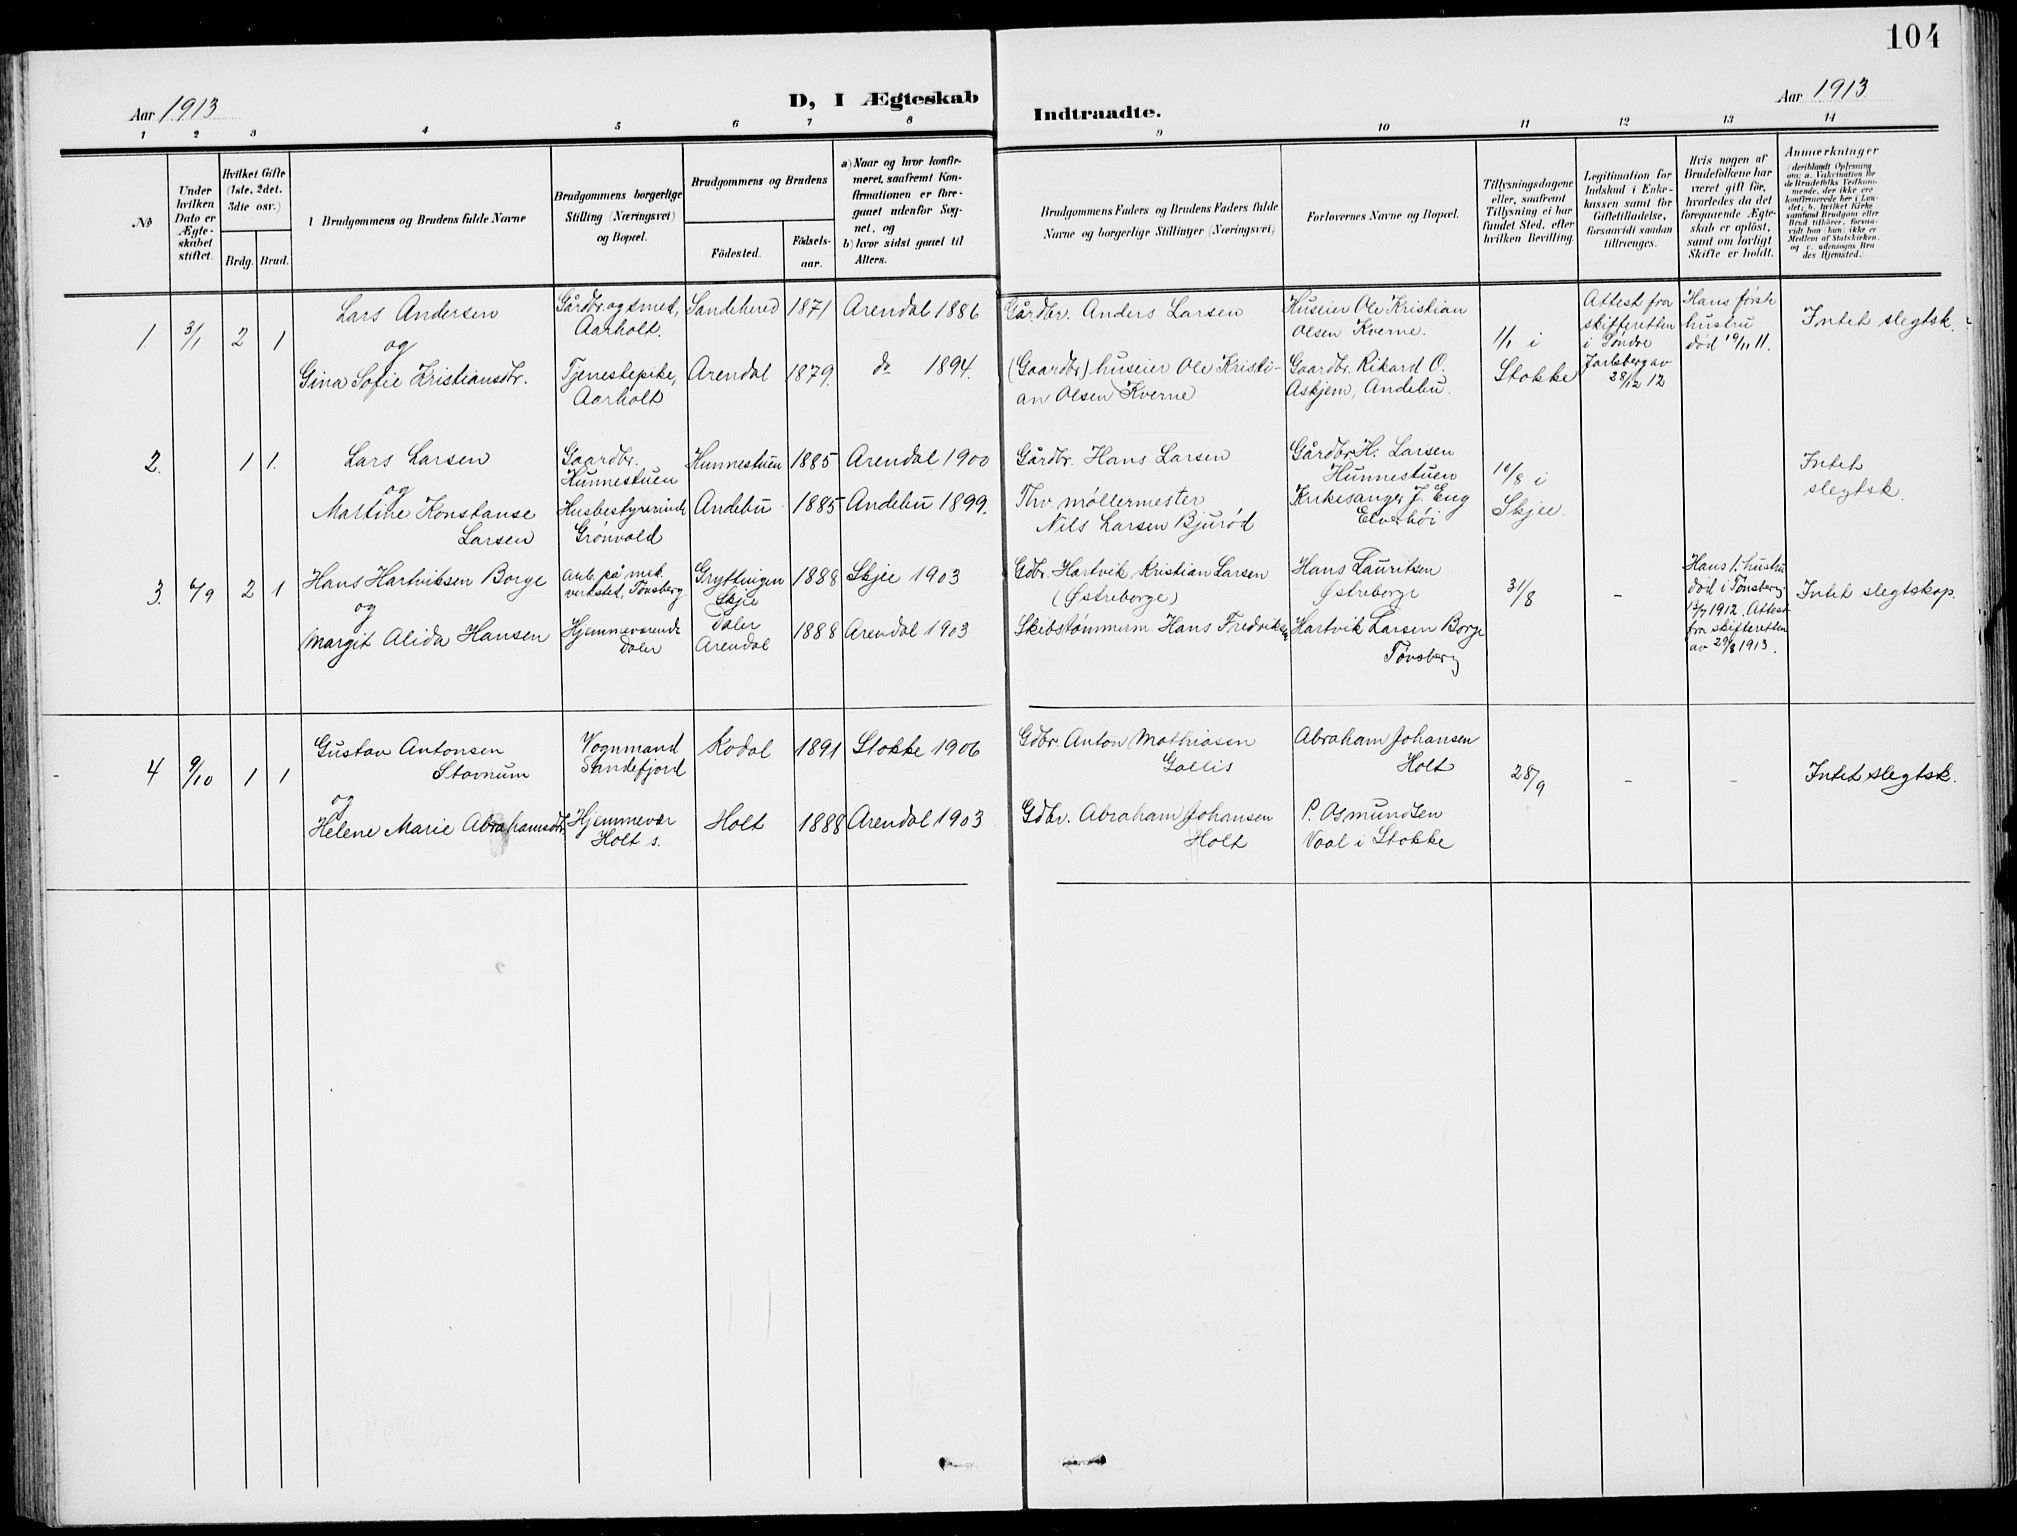 104
Aar 1913
D, I Ægteskab
Indtraadte.
Aar 1913
1 2 3 4 5 6 7 8 9 10 11 12 13 14
No
Under hvilken Dato er Ægteskabet stiftet.
Hvilket Gifte (1ste, 2det, 3die osv.)
Brdg. Brud.
1 Brudgommens og Brudens fulde Navne
Brudgommens borgerlige Stilling (Næringsvei) og Bopæl.
Brudgommens og Brudens
Födested.
Födselsaar.
a) Naar og hvor konfirmeret, saafremt Konfirmationen er foregaaet udenfor Sognet, og
b) hvor sidst gaaet til Alters.
Brudgommens Faders og Brudens Faders fulde Navne og borgerlige Stillinger (Næringsvei)
Forlovernes Navne og Bopæl.
Tillysningsdagene eller, saafremt Tillysning ei har fundet Sted, efter hvilken Bevilling.
Legitimation for Indskud i Enkekassen samt for Giftetilladelse, forsaavidt saadan tiltrænges.
Hvis nogen af Brudefolkene har været gift før, hvorledes da det foregaaende Ægteskab er opløst, samt om lovligt Skifte er holdt.
Anmærkninger
(deriblandt Oplysning om: a. Vakcination for de Brudefolks Vedkommende, der ikke ere konfirmerede her i Landet; b. hvilket Kirkesamfund Brudgom eller Brud tilhører, forsaavidt han (hun) ikke er Medlem af Statskirken, og c. udensogns Brudes Hjemsted.)
1 3/1 2 1
Lars Andersen
og
Gina Sofie Kristiansdtr.
Gårdbr. og smed,
Aarholt.
Tjenestepike,
Aarholt
Sandehered 1871 Arendal 1886
Arendal 1879. do 1894.
Gårdbr. Anders Larsen
(Gaardbr) huseier Ole Kristi-
an Olsen Kverne
Huseier Ole Kristian
Olsen Kverne.
Gaardbr. Rikard O.
Askjem, Andebu.
1/1 i
Stokke
Attest fra
skifteretten
i Søndre
Jarlsberg av
28/12 12
Hans første
hustru
død 19/11 11.
Intet slegtsk.
2. 1 1.
Lars Larsen
og
Martine Konstanse
Larsen
Gaardbr.
Hunnestuen
Husbestyrerinde
Grønvold
Hunnestuen 1885 Arendal 1900
Andebu 1885 Andebu 1899.
Gårdbr. Hans Larsen
Thv. møllermester
Nils Larsen Bjurød
Gårdbr H. Larsen
Hunnestuen
Kirkesanger J. Eng
Elverhöi
10/8 i
Skjee.
Intet
slegtsk.
3. 4/9 2 1
Hans Hartviksen Borge
og
Margit Alida Hansen
Arb. på mek.
verksted, Tønsberg
Hjemmeværende
Daler
Gryttingen
Skjee
1888 Skjee 1903
Daler
Arendal
1888 Arendal 1903
Gdbr. Hartvik Kristian Larsen
(Østreborge)
Skibstømmerm Hans Fredriksen
Hans Lauritsen
Østreborge
Hartvik Larsen Borge
Tønsberg
31/8
-
Hans 1. hustru
død i Tønsberg
1912. Attest
fra skifteretten
av 29/8 1913.
Intet slegtskap.
4 9/10 1 1
Gustav Antonsen
Stavnum
og
Helene Marie Abrahamsdtr.
Vognmand
Sandefjord
Hjemmevær
Holt s.
Kodal 1891 Stokke 1906
Holt 1888 Arendal 1903
Gdbr. Anton Mathiasen
Gallis
Gdbr. Abraham Johansen
Holt
Abraham Johansen
Holt
P. Osmundsen
Vaal i Stokke
28/9
-
-
Intet slegtsk.